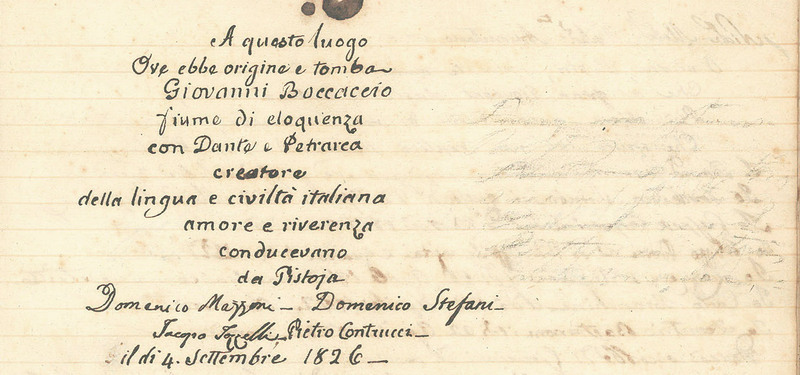 A questo luogo
Ove ebbe origine e tomba
Giovanni Boccaccio
fiume di eloquenza
con Dante e Petrarca
creatore
della lingua e civiltà italiana
amore e riverenza
conducevano
da Pistoja
Domenico Mazzoni – Domenico Stefani –
Pietro Contrucci –
il di 4. Settembre 1826 –